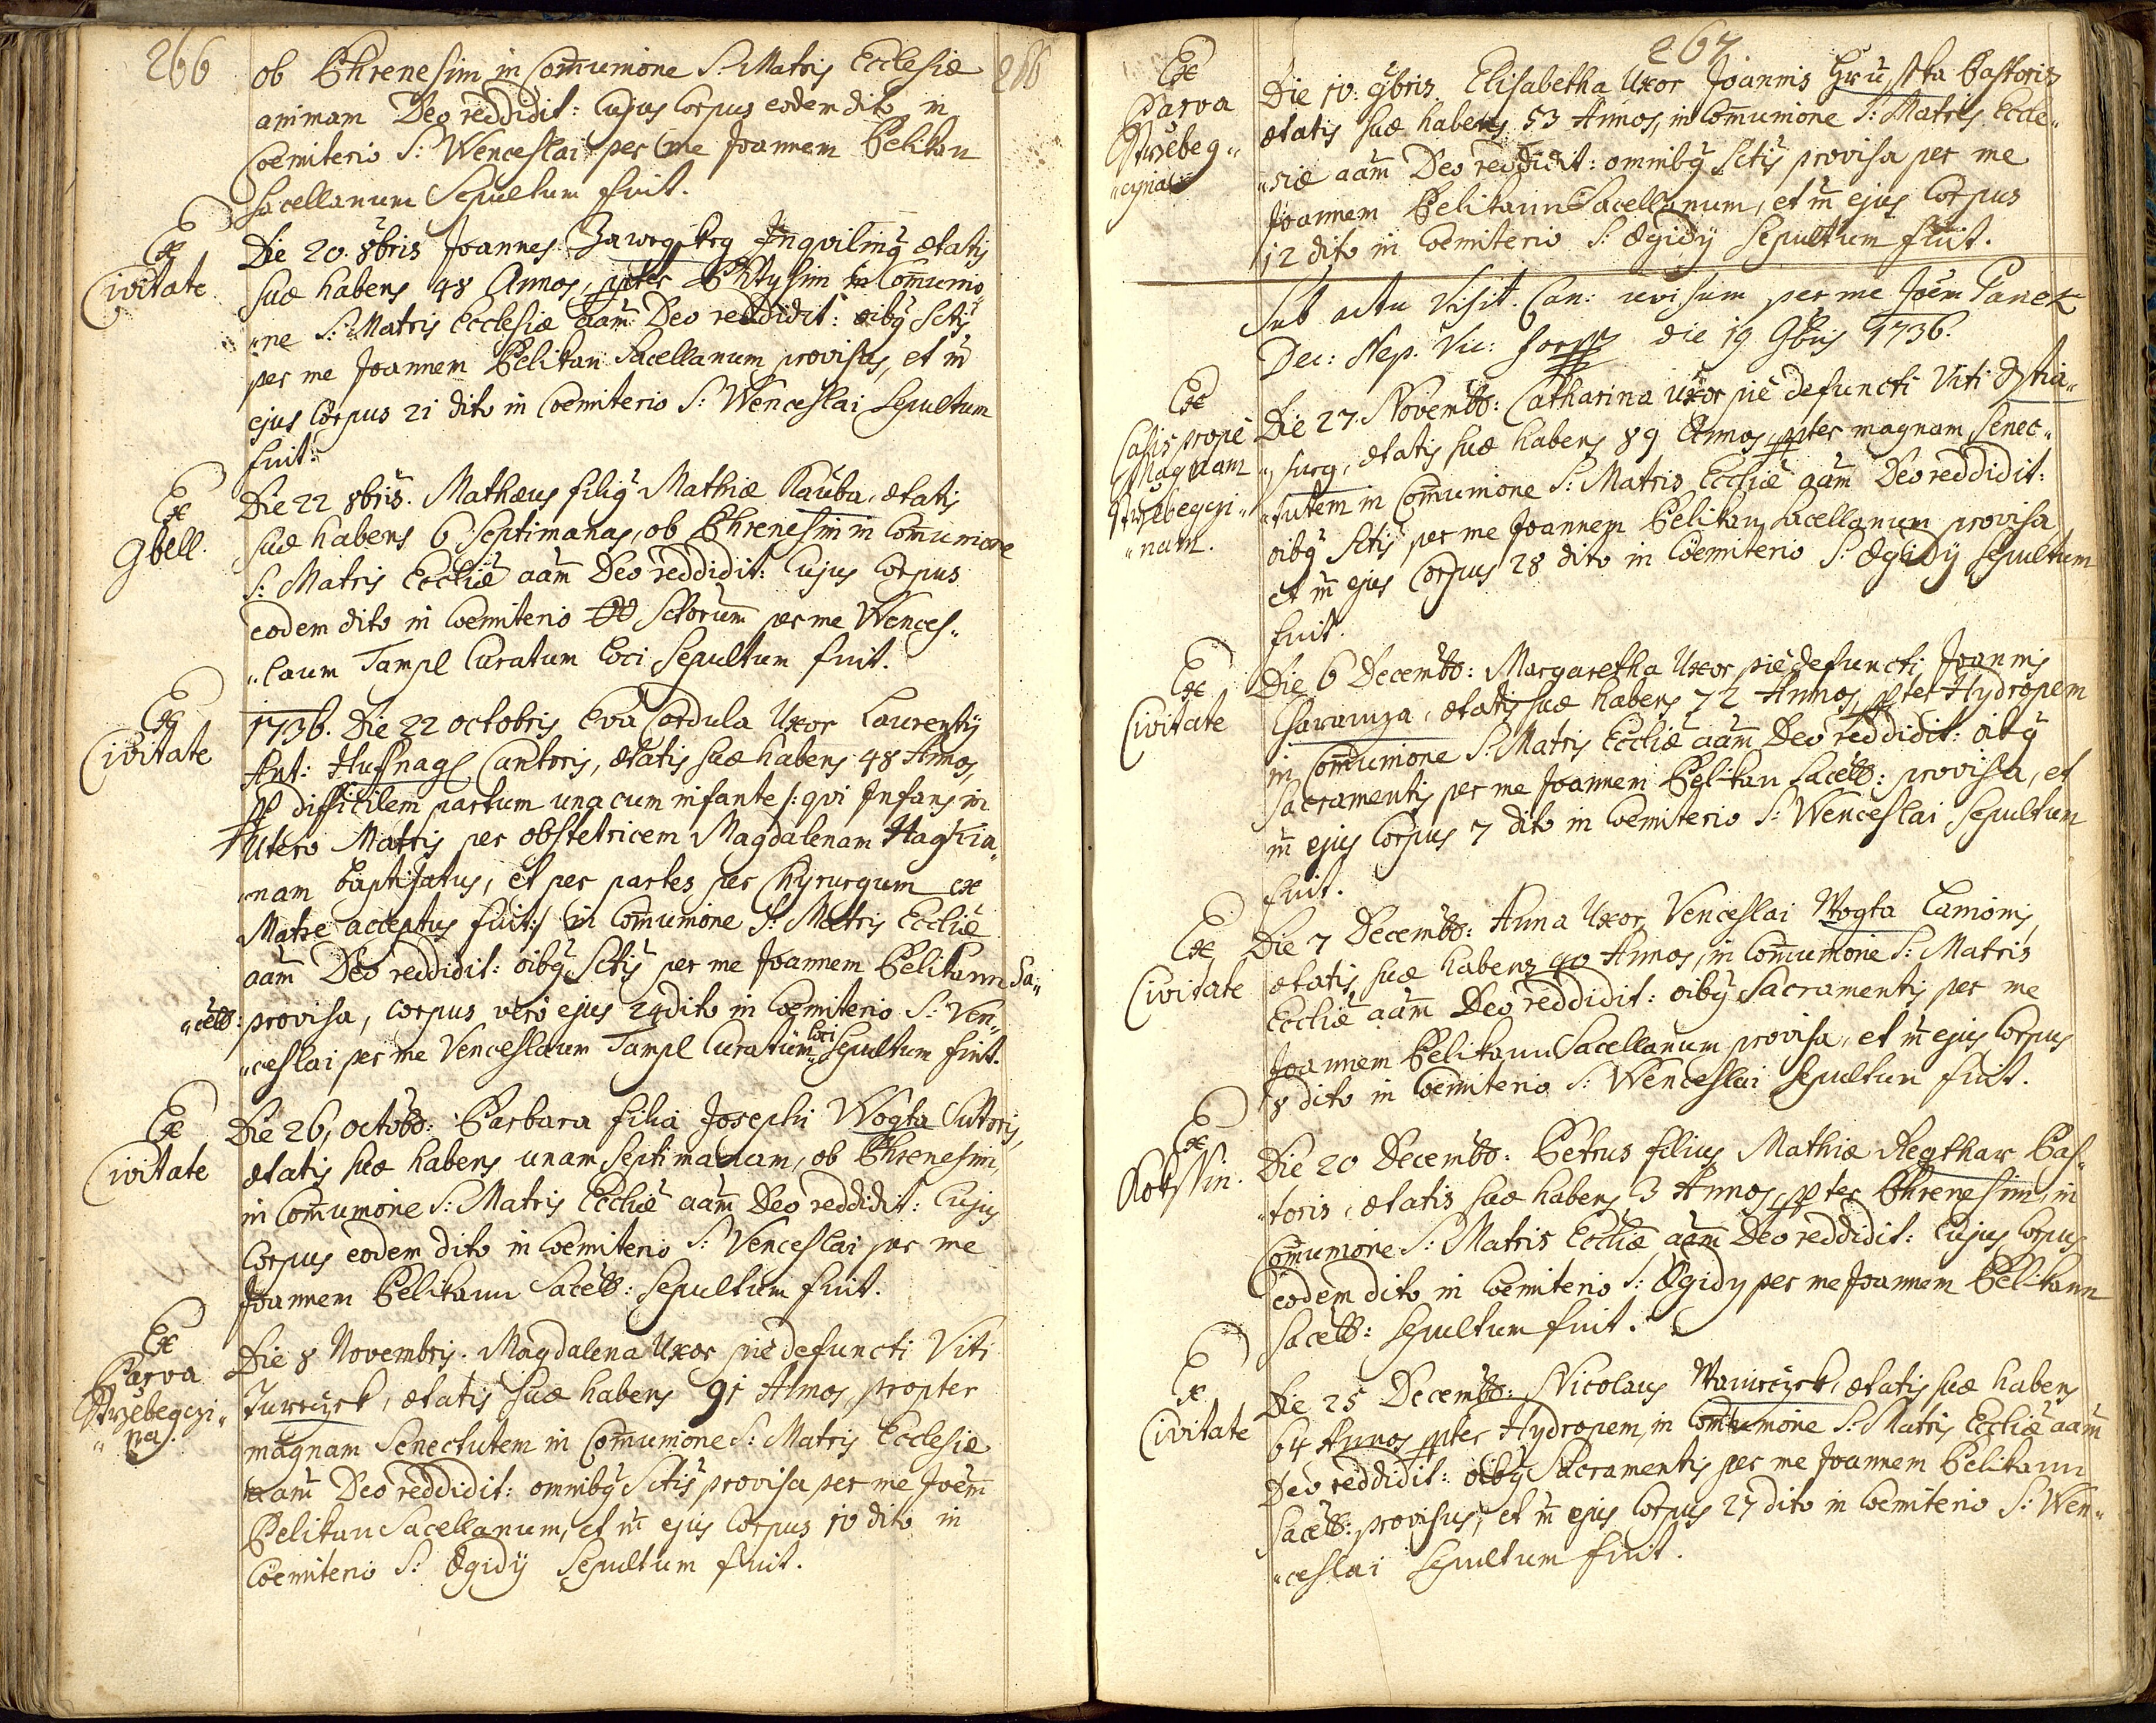 266
ob Phrenesim in Com̄unione S: Matris Ecclesiæ
266
animam Deo reddidit: Cujus Corpus eodem dito in
Coemiterio S: Wenceslai per me Joannem Pelikan
Sacellanum Sepultum fuit.
Ex Civitate
Die 20. 8bris Joannes Inqvilinꝰ ætatis
suæ habens 48 Annos, ppter Phtysim in Com̄unio„
„ne S: Matris Ecclesiæ aam̄ Deo reddidit: oibꝰ Sctis
per me Joannem Pelikan Sacellanum provisus, et m̄
ejus Corpus 21 dito in Coemiterio S: Wenceslai Sepultum
fuit.
Ex Gbell.
Die 22 8bris. Mathæus filiꝰ Mathiæ Kauba, ætatis
suæ habens 6 Septimanas, ob Phrenesim in Com̄unione
S: Matris Eccliæ aam̄ Deo reddidit: Cujus Corpus
eodem dito in Coemiterio OO Sctorum̄ per me Wences„
„laum Tampl Curatum Loci Sepultum fuit.
Ex Civitate
1736. Die 22 octobris Eva Cordula Uxor Laurentÿ
Ant: Huffnagl Cantoris, ætatis suæ habens 48 Annos,
pp difficilem partum una cum infante /: qvi Infans in
Utero Matris per obstetricem Magdalenam Haskia„
„nam baptisatus, et per partes per Chyrurgum ex
Matre acceptus fuit :/ in Com̄unione S: Matris Eccliæ
aam̄ Deo reddidit: oibꝰ Sctis per me Joannem Pelikann Sa„
„cell: provisa, Corpus verò ejus 24 dito in Coemiterio S: Ven„
„ceslai per me Venceslaum Tampl Curatum Loci Sepultum fuit.
Ex Civitate
Die 26, octob: Barbara filia Josephi Wogta Sutoris,
ætatis suæ habens unam Septimanam, ob Phrenesim,
in Com̄unione S: Matris Eccliæ aam̄ Deo reddidit: Cujus
Corpus eodem dito in Coemiterio S: Venceslai per me
Joannem Pelikann Sacell: Sepultum fuit.
Ex Parva Strzebegczi„ „na
Die 8 Novembris. Magdalena Uxor piè defuncti Viti
Turecyck, ætatis suæ habens 91 Annos, propter
magnam Senectutem in Com̄unione S: Matris Ecclesiæ
aam̄ Deo reddidit: omnibꝰ Sctis provisa per me Joēm
Pelikan Sacellanum, et m̄ ejus Corpus 10 dito in
Coemiterio S: Ægidÿ Sepultum fuit.
267
Ex Parva Strzebeg„ „czina
Die 10: 9bris Elisabetha Uxor Joannis Hrusska Pastoris
ætatis suæ habens 53 Annos, in Com̄unione S: Matris Eccle„
„siæ aam̄ Deo reddidit: omnibꝰ Sctis provisa per me
Joannem Pelikann Sacellanum, et m̄ ejus Corpus
12 dito in Coemiterio S: Ægidÿ Sepultum fuit.
Sub actu Visit. Can: revisum per me Joēm Panek
Dec: Step. Vic: die 19 9bris 1736.
Ex Casis propè Magnam Strzebegczi„ „nam.
Die 27. Novemb: Catharina uxor piè defuncti Viti
ætatis suæ habens 89 Annos, ppter magnam Senec„
„tutem in Com̄unione S: Matris Eccliæ aam̄ Deo reddidit:
oibꝰ Sctis per me Joannem Pelikan Sacellanum provisa
et m̄ ejus Corpus 28 dito in Coemiterio S: Ægidÿ Sepultum
fuit.
Ex Civitate
Die 6 Decemb: Margaretha Uxor piè defuncti Joannis
ætatis suæ habens 72 Annos, ppter Hydropem
in Com̄unione S: Matris Eccliæ aam̄ Deo reddidit: oibꝰ
Sacramentis per me Joannem Pelikan Sacell: provisa, et
m̄ ejus Corpus 7 dito in Coemiterio S: Wenceslai Sepultum
fuit.
Ex Civitate
Die 7 Decemb: Anna Uxor Venceslai Wogta Lanionis,
ætatis suæ habens 40 Annos, in Com̄unione S: Matris
Eccliæ aam̄ Deo reddidit: oibꝰ Sacramentis per me
Joannem Pelikann Sacellanum provisa, et m̄ ejus Corpus
8 dito in Coemiterio S: Wenceslai Sepultum fuit.
Ex
Die 20 Decemb: Petrus filius Mathiæ Regthar Pas„
„toris, ætatis suæ habens 3 Annos, ppter Phrenesim, in
Com̄unione S: Matris Eccliæ aam̄ Deo reddidit: Cujus Corpus
eodem dito in Coemiterio S: Ægidy per me Joannem Pelikann
Sacell: Sepultum fuit.
Ex Civitate
Die 25 Decemb: Nicolaus ætatis suæ habens
64 Annos ppter Hydropem, in Com̄unione S: Matris Eccliæ aam̄
Deo reddidit: oibꝰ Sacramentis per me Joannem Pelikann
Sacell: provisus, et m̄ ejus Corpus 27 dito in Coemiterio S: Wen„
„ceslai Sepultum fuit.